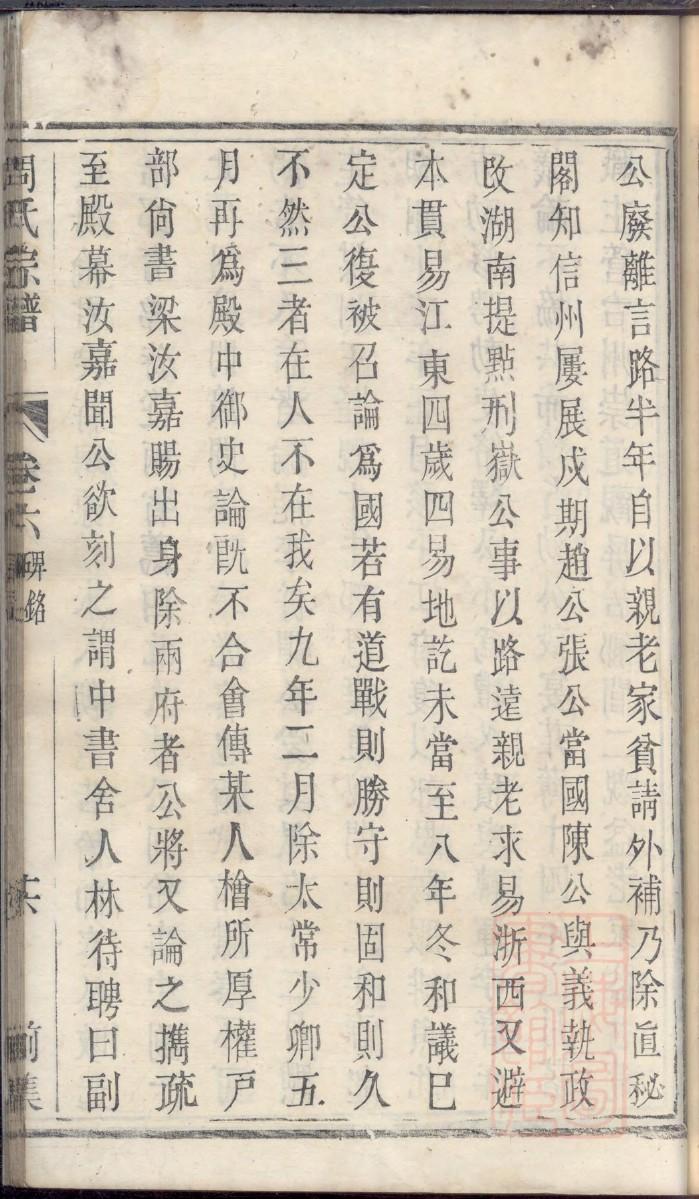 公廢離言路半年自以親老家貧請外補乃除直秘
閣知信州屢展戍期趙公張公當國陳公與義執政
改湖南提點刑獄公事以路遠親老求易浙西又避
本貫易江東四歲四易地訖未當至八年冬和議已
定公復被召論爲國若有道戰則勝守則固和則久
不然三者在人不在我矣九年二月除太常少卿五
月再爲殿中御史論旣不合會傳某人檜所厚權戸
部尙書梁汝嘉賜出身除兩府者公將又論之攜疏
至殿幕汝嘉聞公欲刻之謂中書舍人林待聘曰副
周氏宗譜 卷六 碑銘 前集